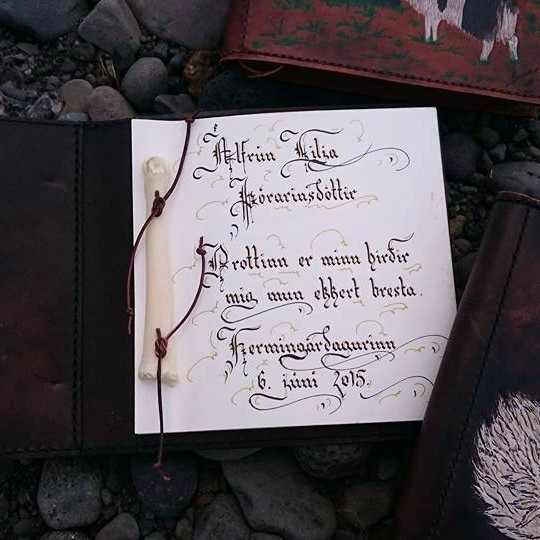 Álfrún Lilja
Þórarinsdóttir
Drottinn er minn hirðir
mig mun ekkert bresta.
Fermingardagurinn
6. júní 2015.